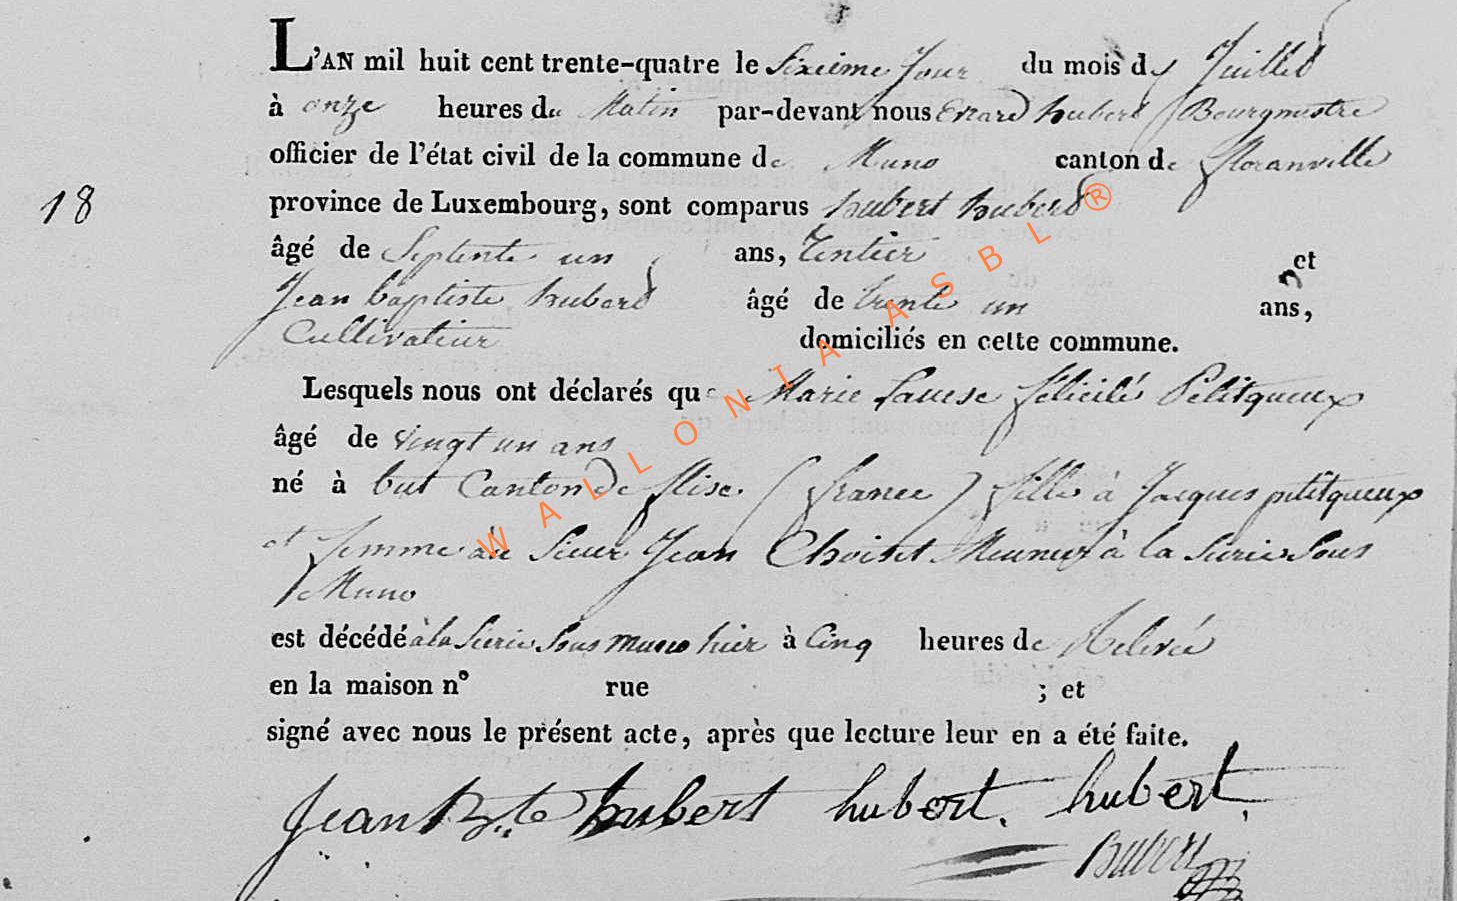 L'AN mil huit cent trente-quatre le Sixième Jour du mois de Juillet
à onze heures du Matin par-devant nous Evrard hubert Bourgmestre
officier de l'état civil de la commune de Muno canton de floranville
18
province de Luxembourg, sont comparus hubert hubert
âgé de Septente un ans, Rentier et
Jean baptiste hubert âgé de trente un ans,
Cultivateur domiciliés en cette commune.
Lesquels nous ont déclarés que Marie Louise félicité Pétitqueux
âgé de vingt un ans
né à but Canton De flise. (france) fille à Jacques petitqueux
et femme au Sieur Jean Choinet Meunier à la Scierie Sous
Muno
est décédé à la Scierie Sous muno hier à Cinq heures de Relevée
en la maison n° rue ; et
signé avec nous le présent acte, après que lecture leur en a été faite.
Jean Bte hubert hubert. hubert.
WALLONIA ASBL ®